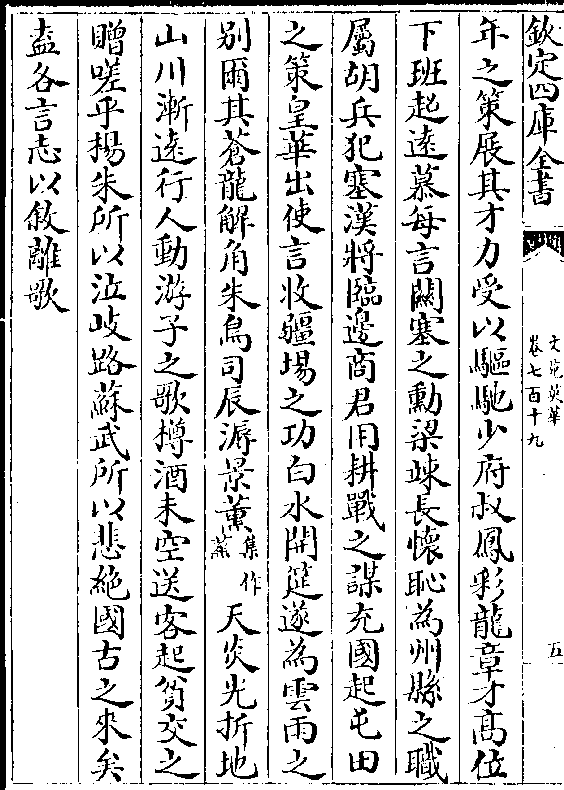 欽定四庫全書
文苑英華
卷七百十九
五
年之策展其才力受以驅馳少府叔鳳彩龍章才髙位
下班起逺慕毎言闗塞之勳梁竦長懐恥為州縣之職
屬胡兵犯塞漢將臨邊商君用耕戰之謀充國起屯田
之策皇華出使言收疆埸之功白水開筵遂為雲雨之
别爾其蒼龍解角朱鳥司辰溽景薫集作蒸天炎光折地
山川漸逺行人動游子之歌樽酒未空送客起貧交之
贈嗟乎揚朱所以泣岐路蘇武所以悲絶國古之來矣
盍各言志以敘離歌